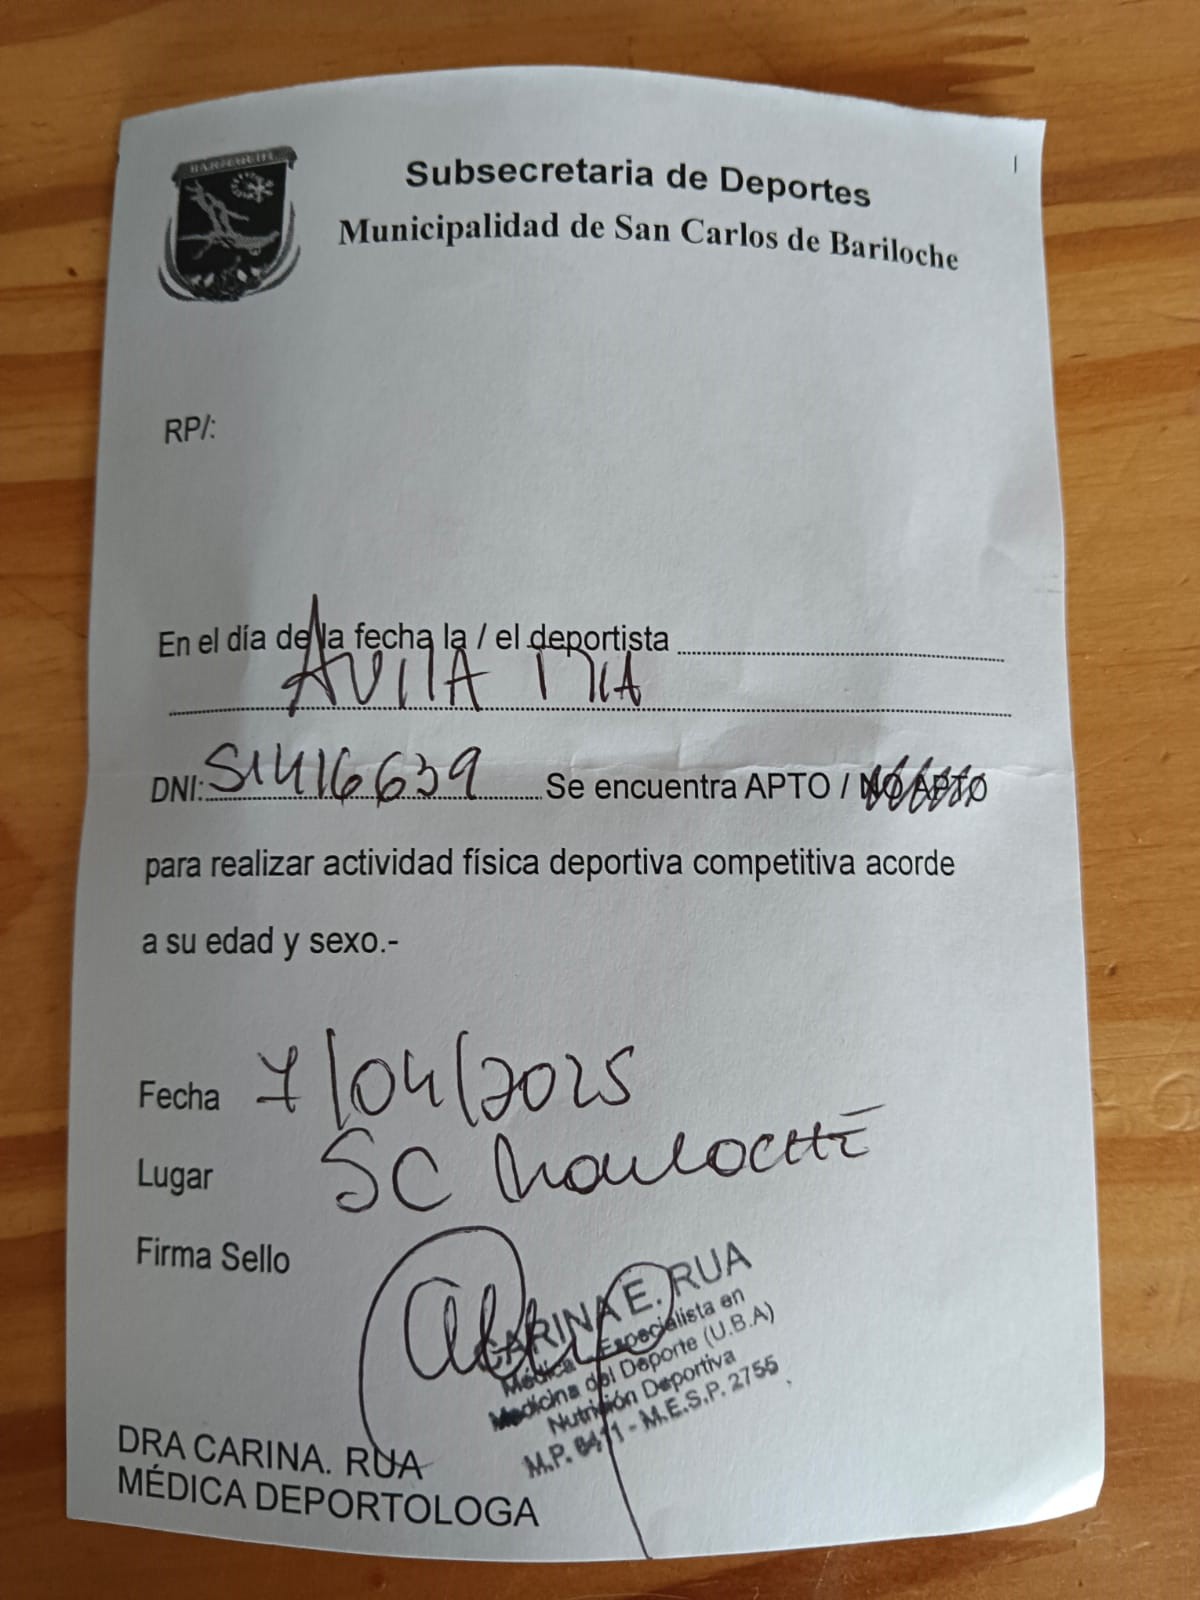 BARILOCHE
Subsecretaria de Deportes
Municipalidad de San Carlos de Bariloche
RP/:
En el día de la fecha la / el deportista
AVILA MIA
DNI: 51416639 Se encuentra APTO / NO APTO
para realizar actividad física deportiva competitiva acorde
a su edad y sexo.-
Fecha 7/04/2025
Lugar SC Bariloche
Firma Sello
CARINA E. RUA
Médica Especialista en
Medicina del Deporte (U.B.A)
Nutrición Deportiva
M.P. 6411 - M.E.S.P. 2755
DRA CARINA. RUA
MÉDICA DEPORTOLOGA